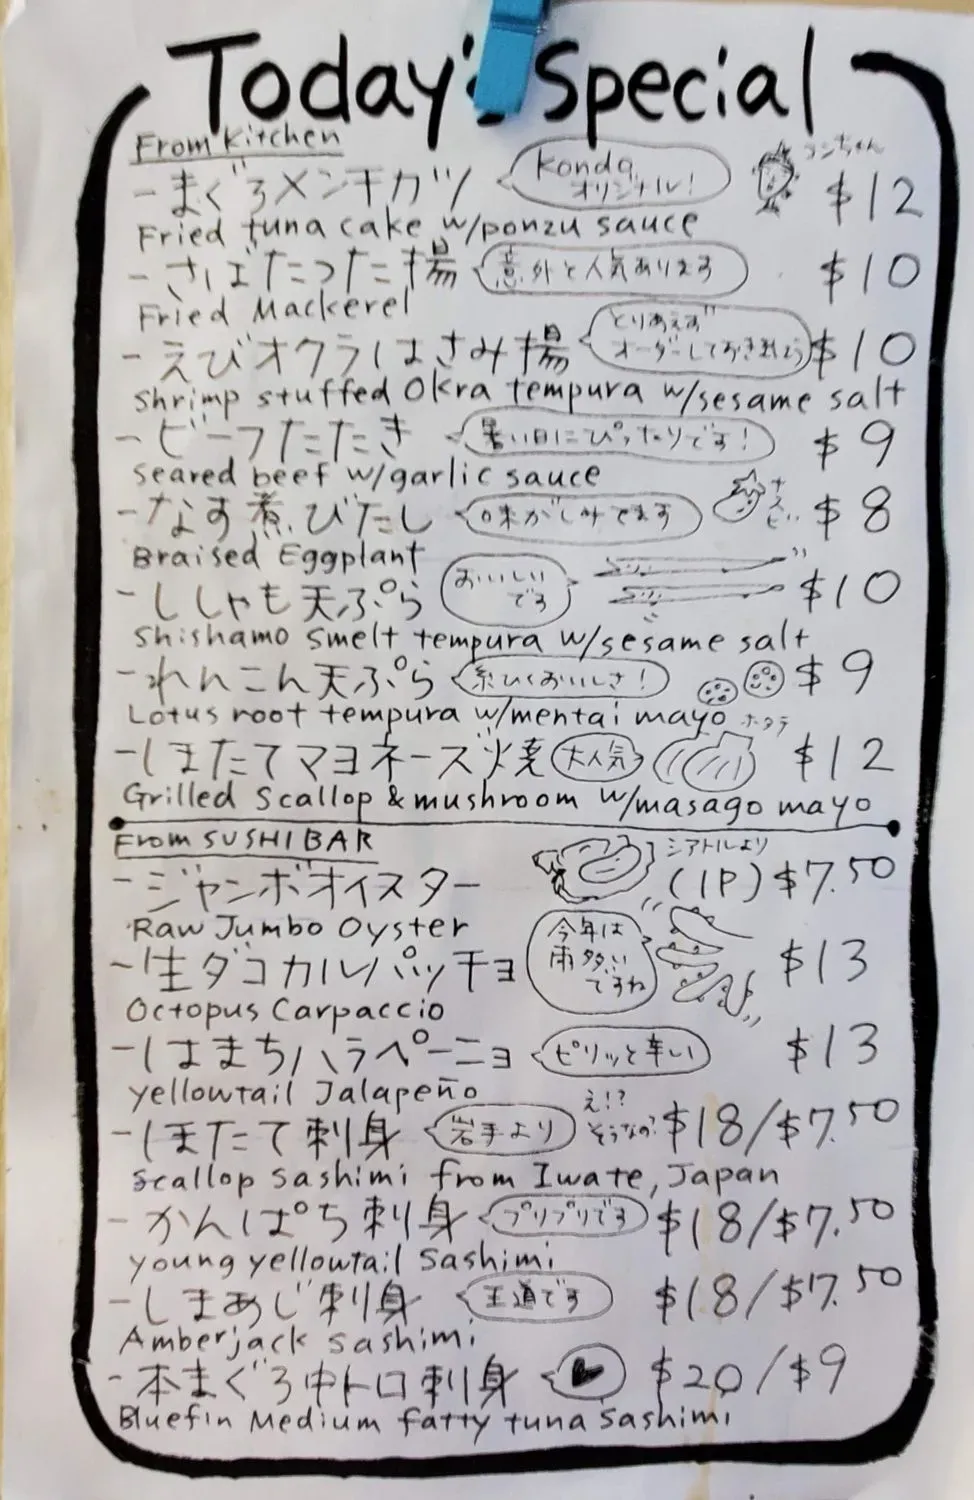 Today's Special
From Kitchen
- まぐろメンチカツ Konda オリジナル! コンちゃん $12
Fried tuna cake w/ponzu sauce
- さばたつた揚 意外と人気あります $10
Fried Mackerel
- えびオクラはさみ揚 とりあえず オーダーしておきましょう $10
Shrimp stuffed Okra tempura w/sesame salt
- ビーフたたき 暑い日にぴったりです! $9
Seared beef w/garlic sauce
- なす煮びたし 味がしみてます ナスビ $8
Braised Eggplant
- ししゃも天ぷら おいしいです $10
Shishamo Smelt tempura w/sesame salt
- れんこん天ぷら $9
Lotus root tempura w/mentai mayo
- ほたてマヨネーズ焼 大人気 ホタテ $12
Grilled Scallop & mushroom w/masago mayo
From SUSHI BAR
- ジャンボオイスター シアトルより (1P) $7.50
Raw Jumbo Oyster
- 生ダコカルパッチョ 今年は雨多いですね $13
Octopus Carpaccio
- はまちハラペーニョ ピリッと辛い $13
Yellowtail Jalapeño
- ほたて刺身 岩手より え!? そうなの? $18/$7.50
Scallop Sashimi from Iwate, Japan
- かんぱち刺身 プリプリです $18/$7.50
young yellowtail Sashimi
- しまあじ刺身 王道です $18/$7.50
Amberjack Sashimi
- 本まぐろ中トロ刺身 $20/$9
Bluefin Medium fatty tuna Sashimi